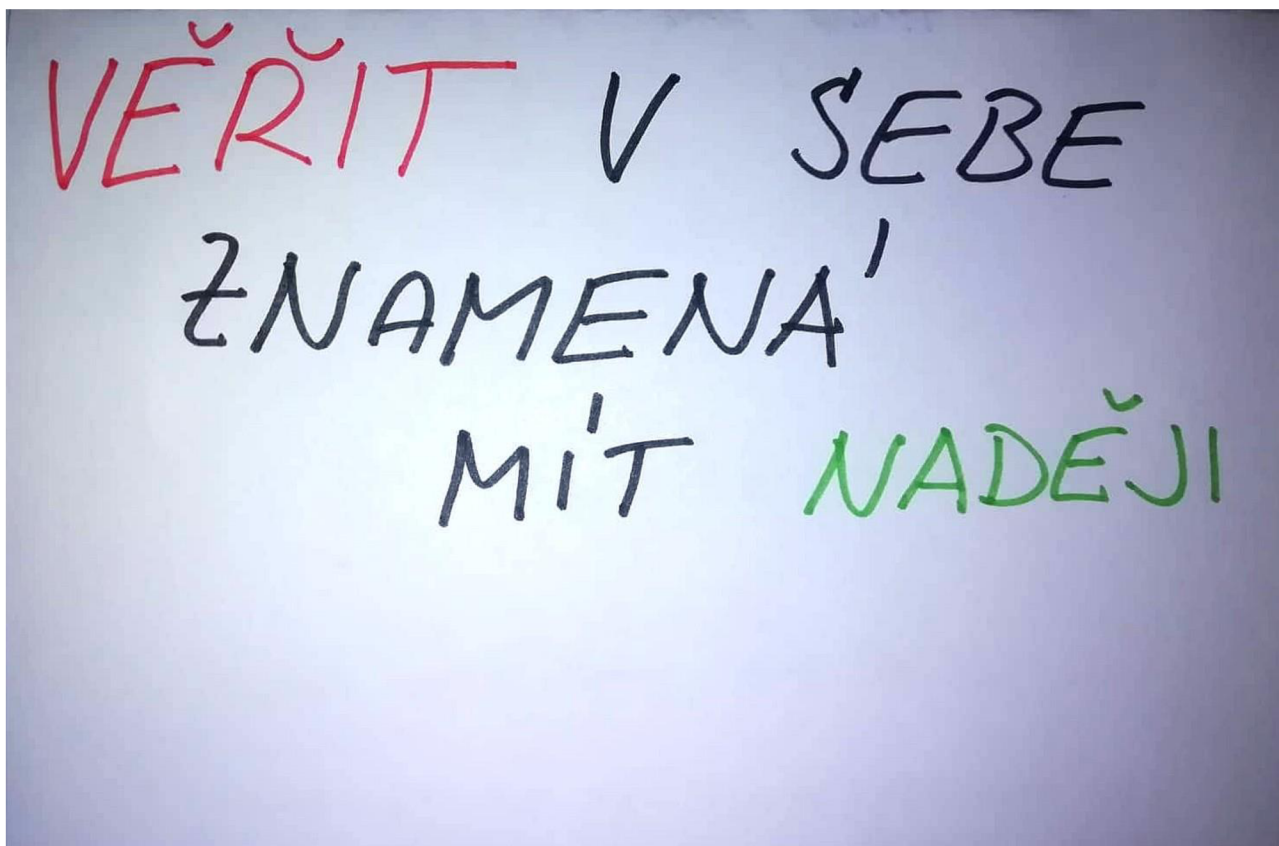 VĚŘIT V SEBE
ZNAMENÁ
MÍT NADĚJI